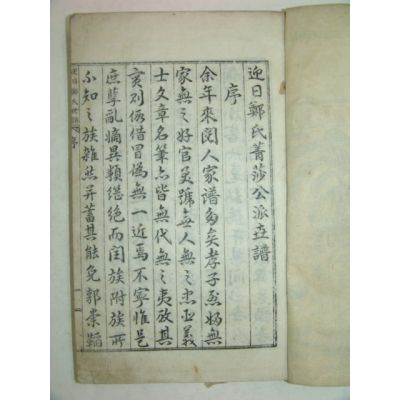 迎日鄭氏菁莎公派世譜
序
余年來閱人家譜多矣孝子烈婦無
家無之好官美號無人無之忠臣義
士文章名筆亦皆無代無之夷攷其
實則假借冒僞無一近焉不寧惟是
庶孽亂嫡異類繼絕而族附族所
不知之族雜然幷蓄其能免郭崇韜